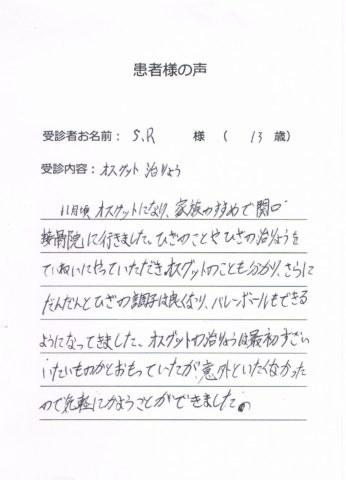 患者様の声
受診者お名前： S.R 様 （ 13 歳）
受診内容：オスグット 治りょう
11月頃 オスグットになり、家族のすすめで関口
接骨院に行きました。ひざのことやひざの治りょうを
ていねいにやっていただき、オスグットのことも分かり、さらに
だんだんとひざの調子は良くなり、バレーボールもできる
ようになってきました。オスグットの治りょうは最初すごい
いたいものかとおもっていたが、意外といたくなかった
ので気軽にかようことができました。